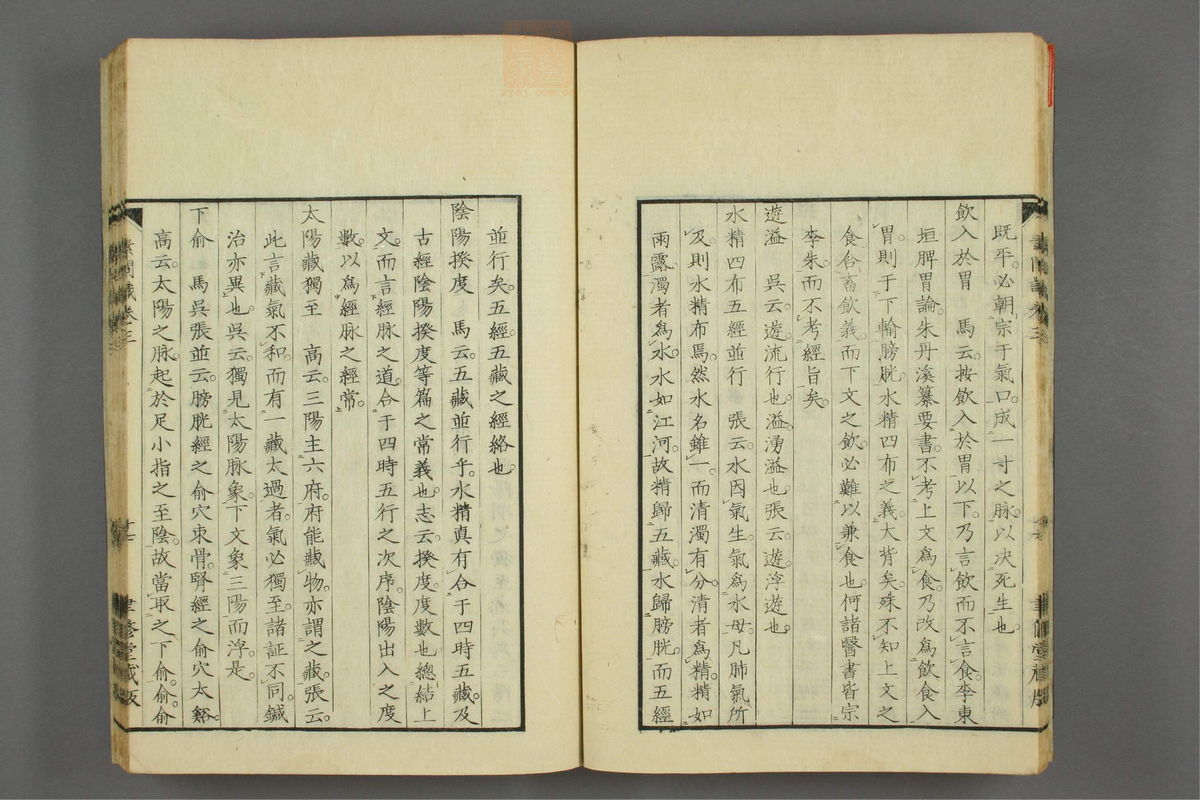 既平必朝宗于氣口成一寸之脉以決死生也
飲入於胃　馬云按飲入於胃以下乃言飲而不言食李東
垣脾胃論朱丹溪纂要書不考上文為食乃改為飲食入
胃則于下輸膀胱水精四布之義大背矣殊不知上文之
食含畜飲義而下文之飲必難以兼食也何諸醫書皆宗
李朱而不考經旨矣
遊溢　吳云遊流行也溢湧溢也張云遊浮遊也
水精四布五經並行　張云水因氣生氣為水母凡肺氣所
及則水精布焉然水名雖一而清濁有分清者為精精如
雨露濁者為水水如江河故精歸五藏水歸膀胱而五經
並行矣五經五藏之經絡也
陰陽揆度　馬云五藏並行乎水精真有合于四時五藏及
古經陰陽揆度等篇之常義也志云揆度度數也總結上
文而言經脉之道合于四時五行之次序陰陽出入之度
數以為經脉之經常
太陽藏獨至　高云三陽主六府府能藏物亦謂之藏張云
此言藏氣不和而有一藏太過者氣必獨至諸証不同鍼
治亦異也吳云獨見太陽脉象下文象三陽而浮是
下俞　馬吳張並云膀胱經之俞穴束骨腎經之俞穴太谿
高云太陽之脉起於足小指之至陰故當取之下俞俞俞
素問識卷三
廿七
聿修堂藏版